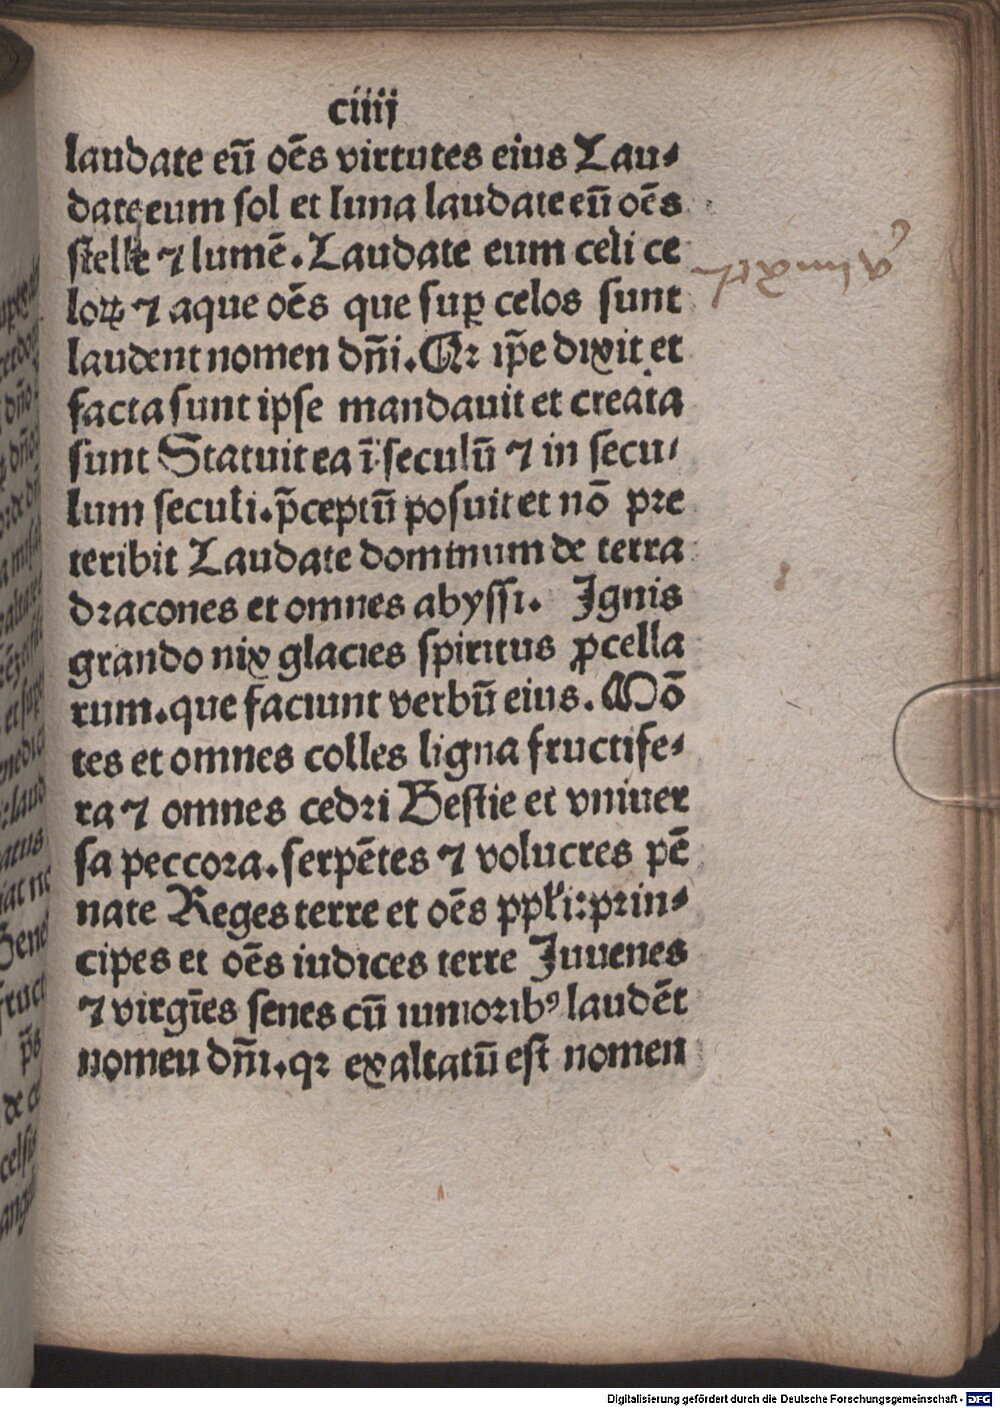 ciiij
laudate eū oēs virtutes eius Lau⸗
date eum sol et luna laudate eū oēs
stelle ⁊ lumē. Laudate eum celi ce
loꝝ ⁊ aque oēs que suꝑ celos sunt
laudent nomen dn̄i. Qꝛ ip̄e dixit et
facta sunt ipse mandauit et creata
sunt Statuit ea ī seculū ⁊ in secu⸗
lum seculi. p̄ceptū posuit et nō pre
teribit Laudate dominum de terra
dꝛacones et omnes abyssi. Ignis
grando nix glacies spiritus ꝓcella
rum. que faciunt verbū eius. Mō
tes et omnes colles ligna fructife⸗
ra ⁊ omnes cedꝛi Bestie et vniuer
sa peccoꝛa. serpētes ⁊ volucres pē
nate Reges terre et oēs ppłi: pꝛin⸗
cipes et oēs iudices terre Iuuenes
⁊ virgīes senes cū iunioꝛibꝰ laudēt
nomeu dn̄i. qꝛ exaltatū est nomen
Digitalisierung gefördert durch die Deutsche Forschungsgemeinschaft - DFG